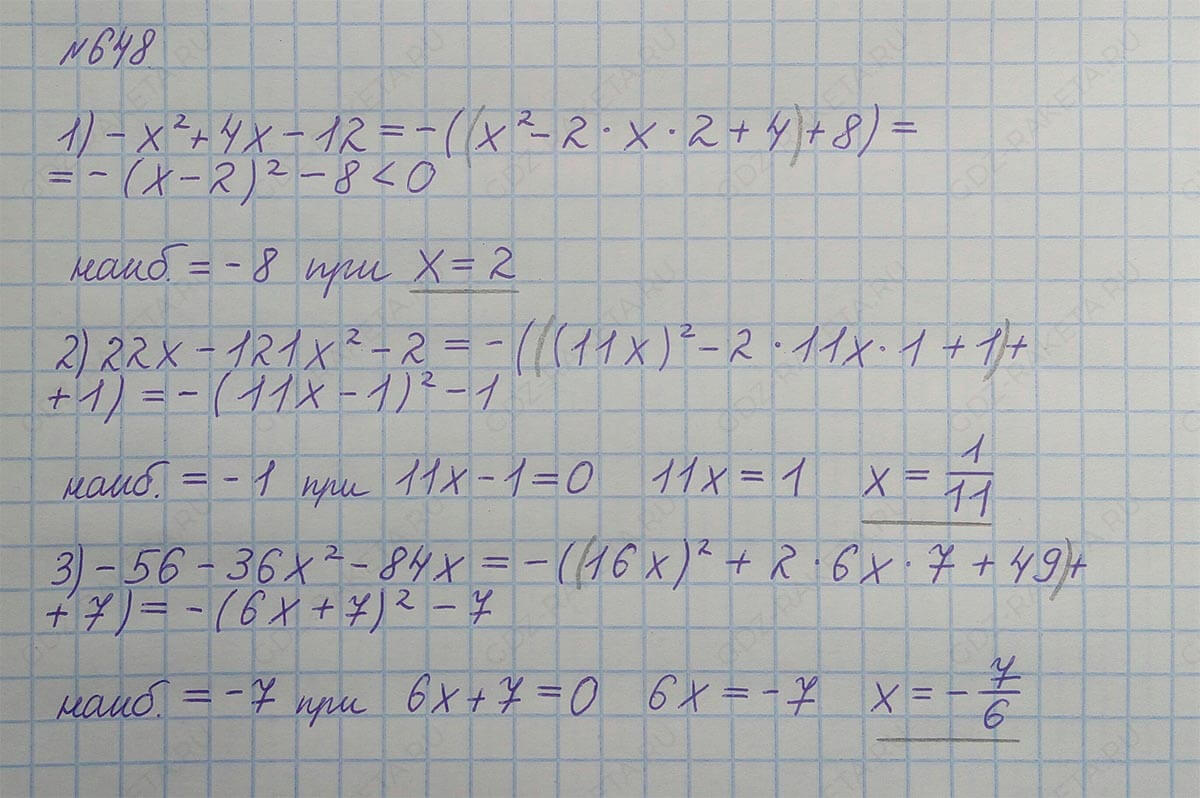 №648
1) - x² + 4x - 12 = - ((x² - 2 · x · 2 + 4) + 8) =
= - (x - 2)² - 8 < 0
наиб. = - 8 при x = 2
2) 22x - 121x² - 2 = - (((11x)² - 2 · 11x · 1 + 1) +
+ 1) = - (11x - 1)² - 1
наиб. = - 1 при 11x - 1 = 0 11x = 1 x = 1/11
3) - 56 - 36x² - 84x = - ((16x)² + 2 · 6x · 7 + 49) +
+ 7) = - (6x + 7)² - 7
наиб. = -7 при 6x + 7 = 0 6x = -7 x = - 7/6
GDZ-RAKETA.RU